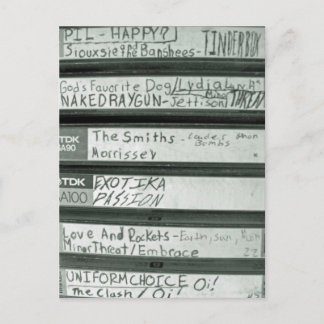 PIL - HAPPY?
Siouxsie and the Banshees - TINDERBOX
Gods Favorite Dog / Lydia
NAKED RAYGUN - Jettison
TDK The Smiths - Louder than
SA90 Bombs
Morrissey
TDK EXOTIKA
SA100 PASSION
Love And Rockets - Earth, Sun,
Minor Threat / Embrace
UNIFORM CHOICE Oi!
The Clash / Oi!